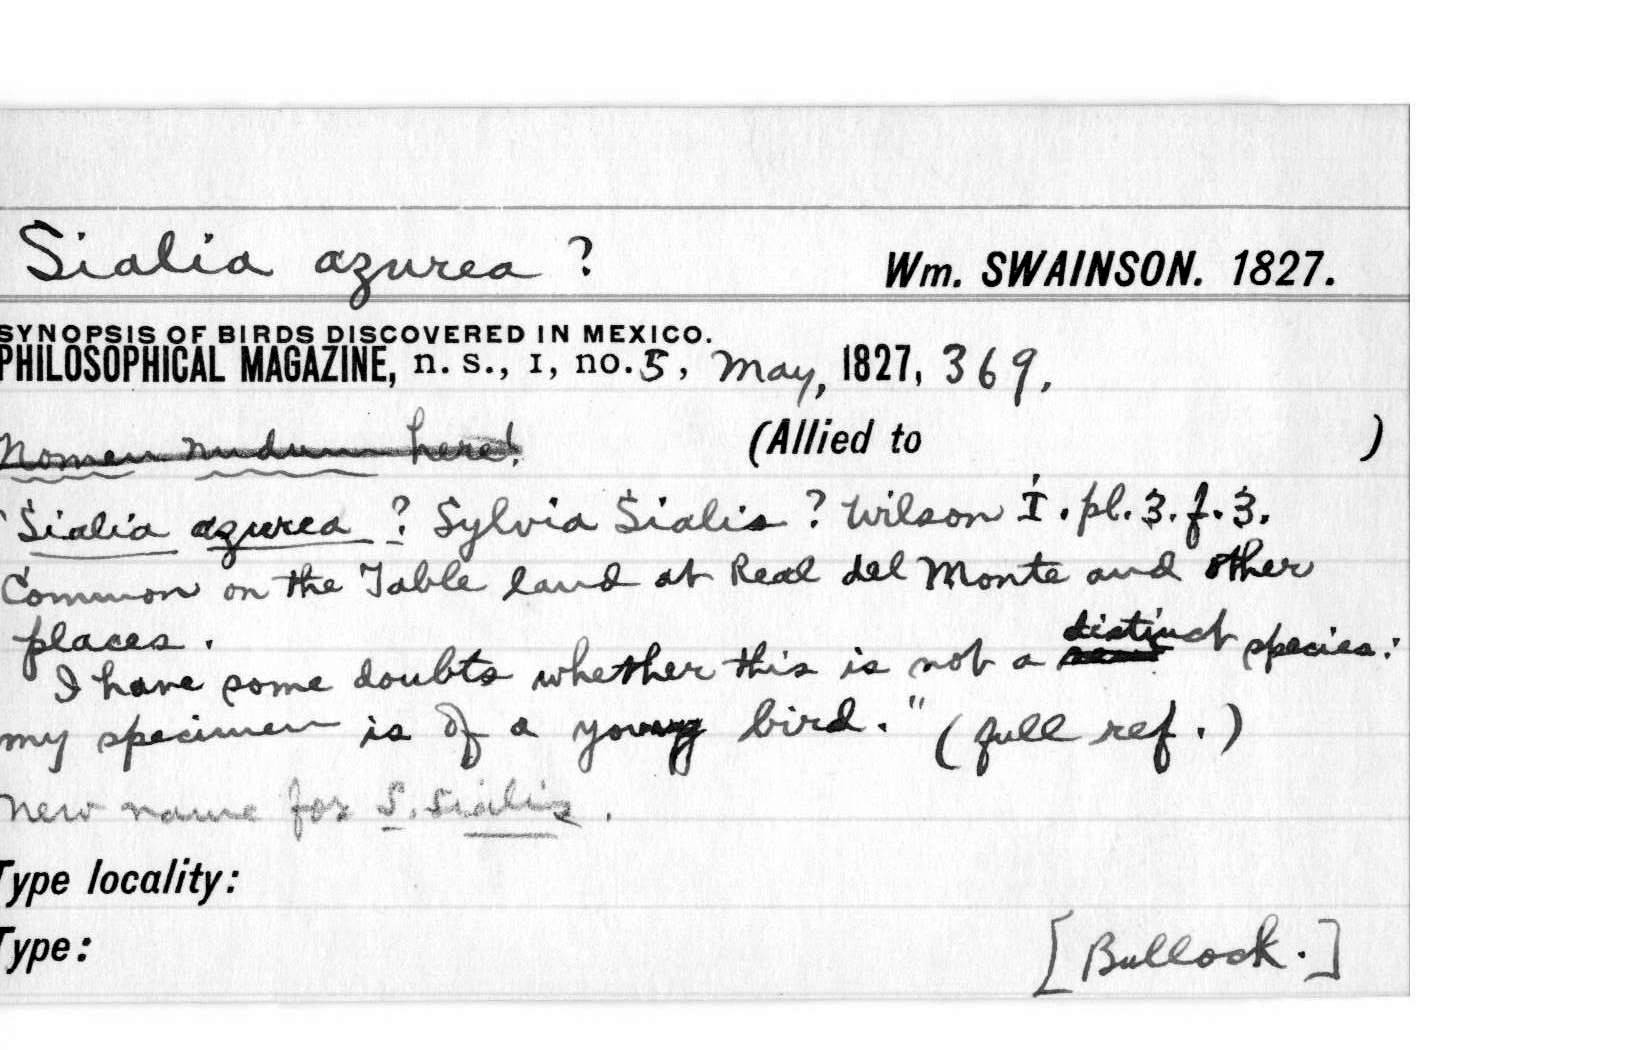 Sialia azurea ? Wm. SWAINSON. 1827.
SYNOPSIS OF BIRDS DISCOVERED IN MEXICO.
PHILOSOPHICAL MAGAZINE, n. s., I, no. 5, May, 1827, 369.
Nomen nudum here! (Allied to )
"Sialia azurea ? Sylvia Sialis ? Wilson I. pl. 3. f. 3.
Common on the Table land at Real del Monte and other
places.
I have some doubts whether this is not a distinct species:
my specimen is of a young bird." (full ref.)
New name for S. sialis.
Type locality:
Type:
[Bullock.]